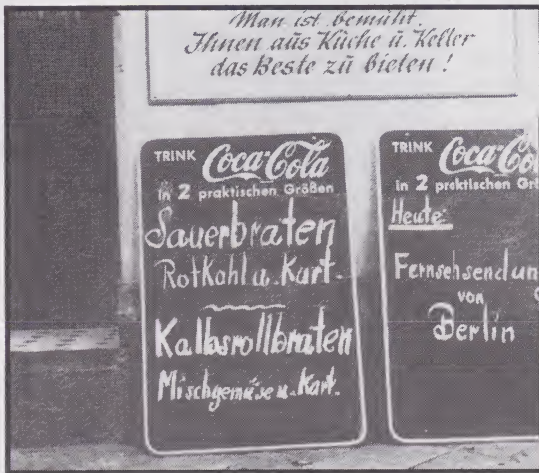 Man ist bemüht.
Ihnen aus Küche u. Keller
das Beste zu bieten !
TRINK Coca-Cola
in 2 praktischen Größen
Sauerbraten
Rotkohl u. Kart.
Kalbsrollbraten
Mischgemüse u. Kart.
TRINK Coca-Co
in 2 praktischen Grö
Heute:
Fernsehsendun
von
Berlin